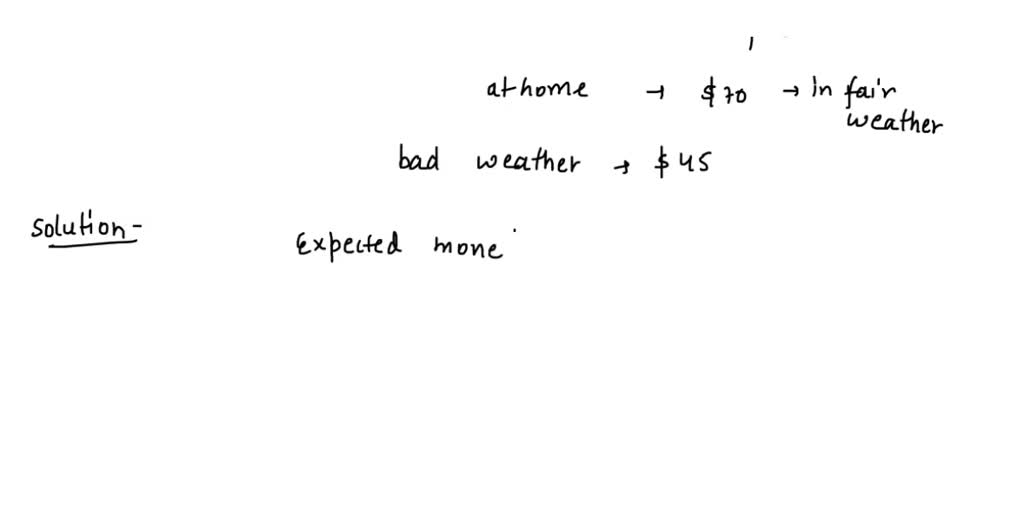 at home → $70 → In fair
weather
bad weather → $45
Solution-
Expected mone